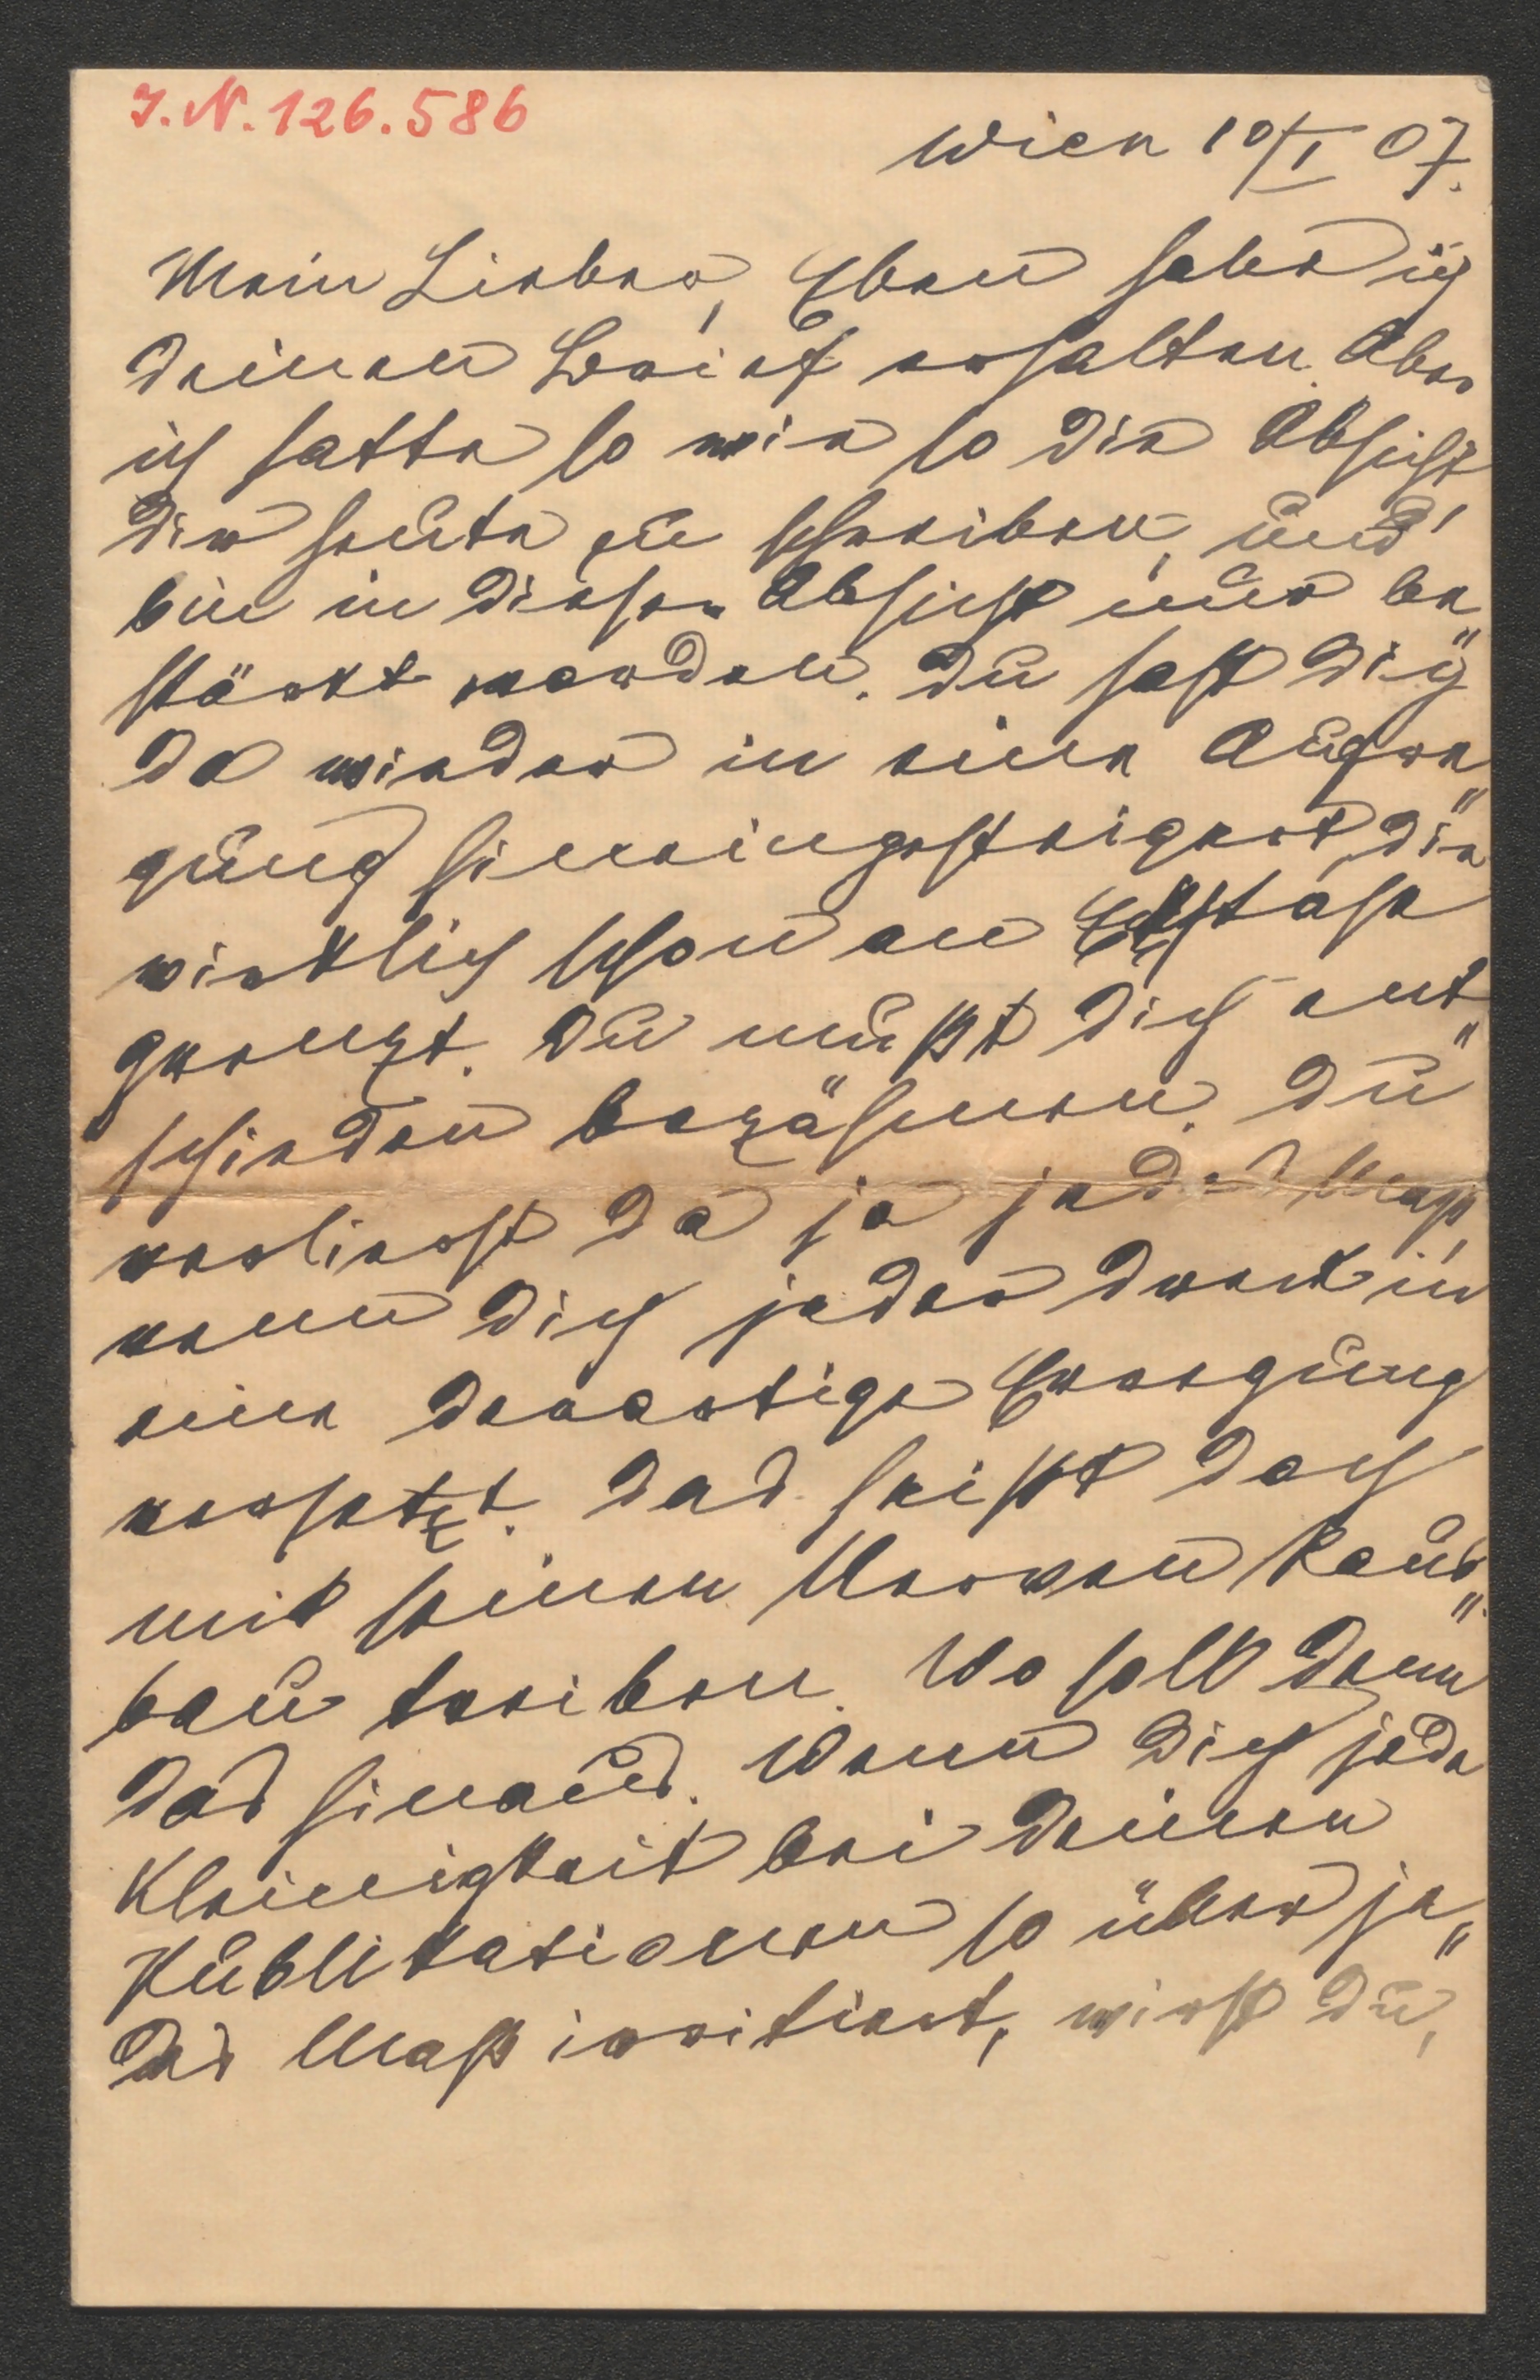 I. N. 126.586
Wien 10/I 07.
Mein Lieber, Eben habe ich
deinen Brief erhalten. Aber
ich hatte so wie so die Absicht
dir heute zu schreiben, und
bin in dieser Absicht nur be„
stärkt worden. Du hast dich
da wieder in eine Aufre„
gung hineingesteigert, die
wirklich schon an Ekstase
grenzt. Du mußt dich ent„
schieden bezähmen. Du
verlierst da ja jedes Maß,
wenn dich jeder Dreck in
eine derartige Erregung
versetzt. Das heißt doch
mit seinen Nerven Raub„
bau treiben. Wo soll denn
das hinaus. Wenn dich jede
Kleinigkeit bei deinen
Publikationen so über je„
des Maß irritiert, wirst du,